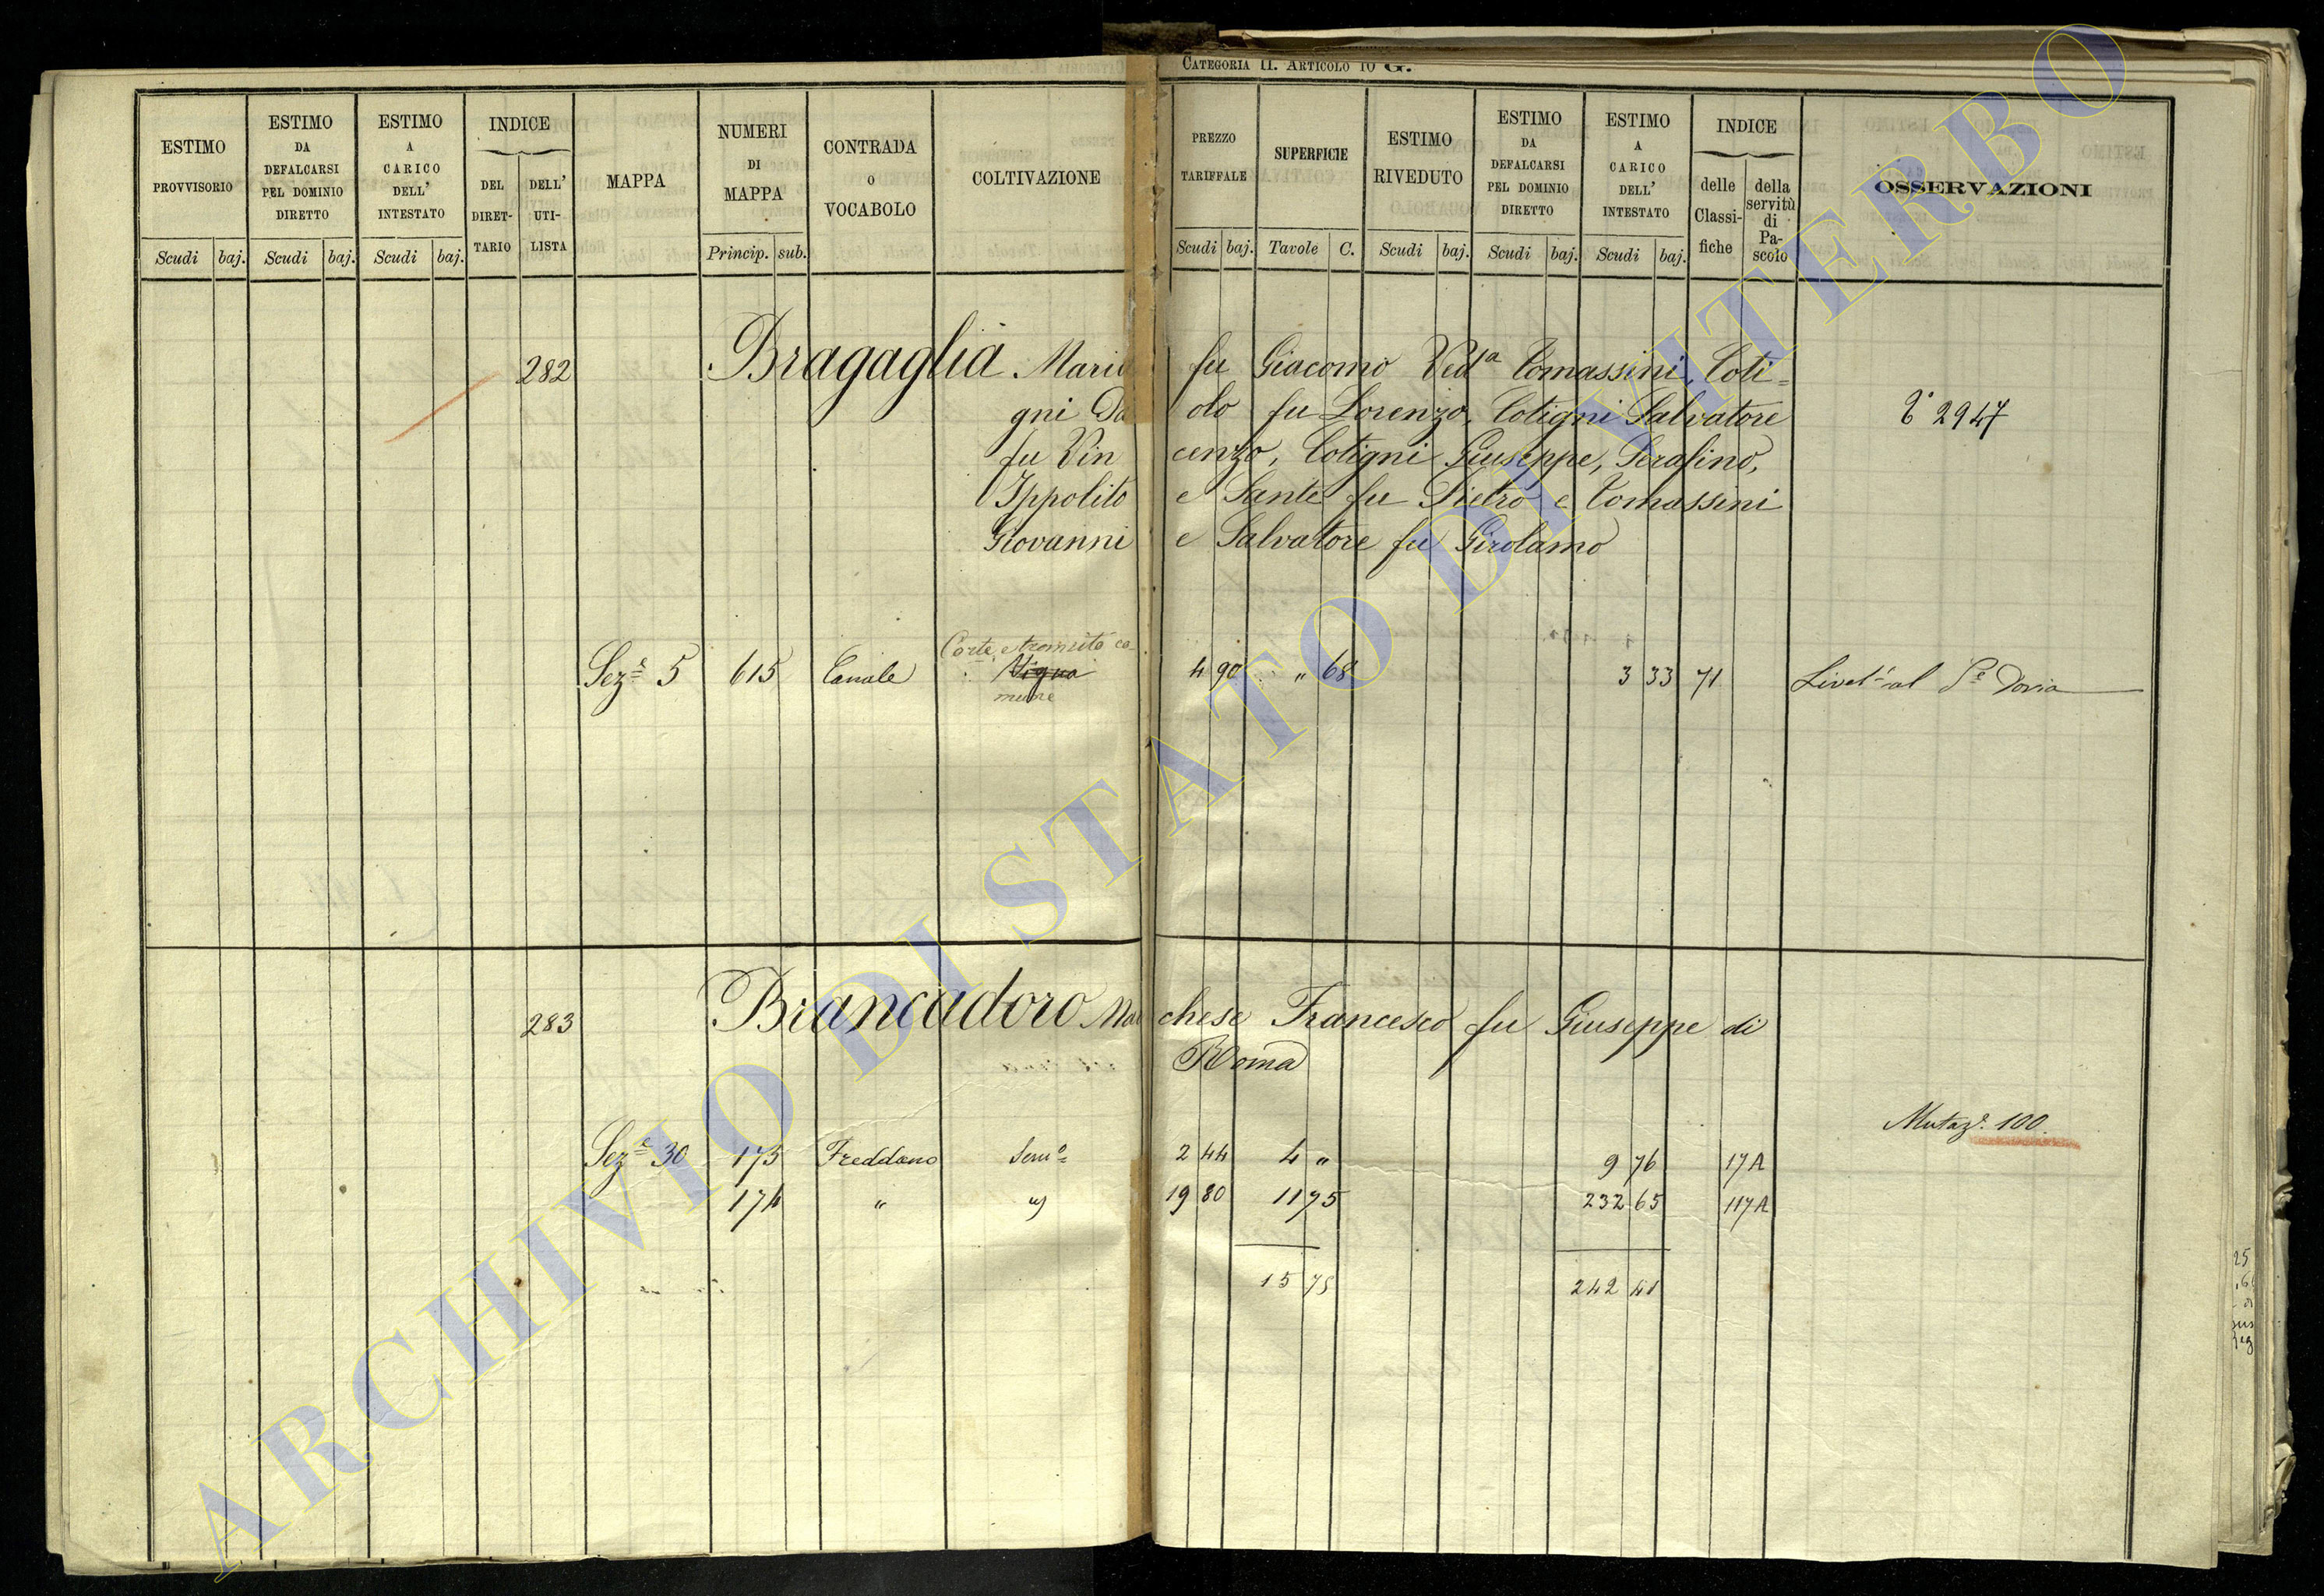 CATEGORIA II. ARTICOLO 10 G.
ESTIMO PROVVISORIO
Scudi baj.
ESTIMO DA DEFALCARSI PEL DOMINIO DIRETTO
Scudi baj.
ESTIMO A CARICO DELL' INTESTATO
Scudi baj.
INDICE
DEL DIRET-
TARIO
DELL' UTI-
LISTA
MAPPA
NUMERI DI MAPPA
Princip. sub.
CONTRADA O VOCABOLO
COLTIVAZIONE
PREZZO TARIFFALE
Scudi baj.
SUPERFICIE
Tavole C.
ESTIMO RIVEDUTO
Scudi baj.
ESTIMO DA DEFALCARSI PEL DOMINIO DIRETTO
Scudi baj.
ESTIMO A CARICO DELL' INTESTATO
Scudi baj.
INDICE
delle Classi-
fiche
della servitù di Pa-
scolo
OSSERVAZIONI
282 Bragaglia Maria fu Giacomo Ved.a Tomassini, Coti=
gni Paolo fu Lorenzo, Cotigni Salvatore
fu Vincenzo, Cotigni Giuseppe, Serafino,
Ippolito e Sante fu Pietro e Tomassini
Giovanni e Salvatore fu Girolamo
2947
Corte co
Sez.e 5 615 Canale Vigna 4 90 " 68 3 33 71 Livel.o al P.e Doria
mune
283 Brancadoro Marchese Francesco fu Giuseppe di
Roma
Mutaz.e 100.
Sez.e 30 173 Freddano Sem.o 2 44 4 " 9 76 17 A
174 " " 19 80 11 75 232 65 117 A
15 75 242 41
ARCHIVIO DI STATO DI VITERBO